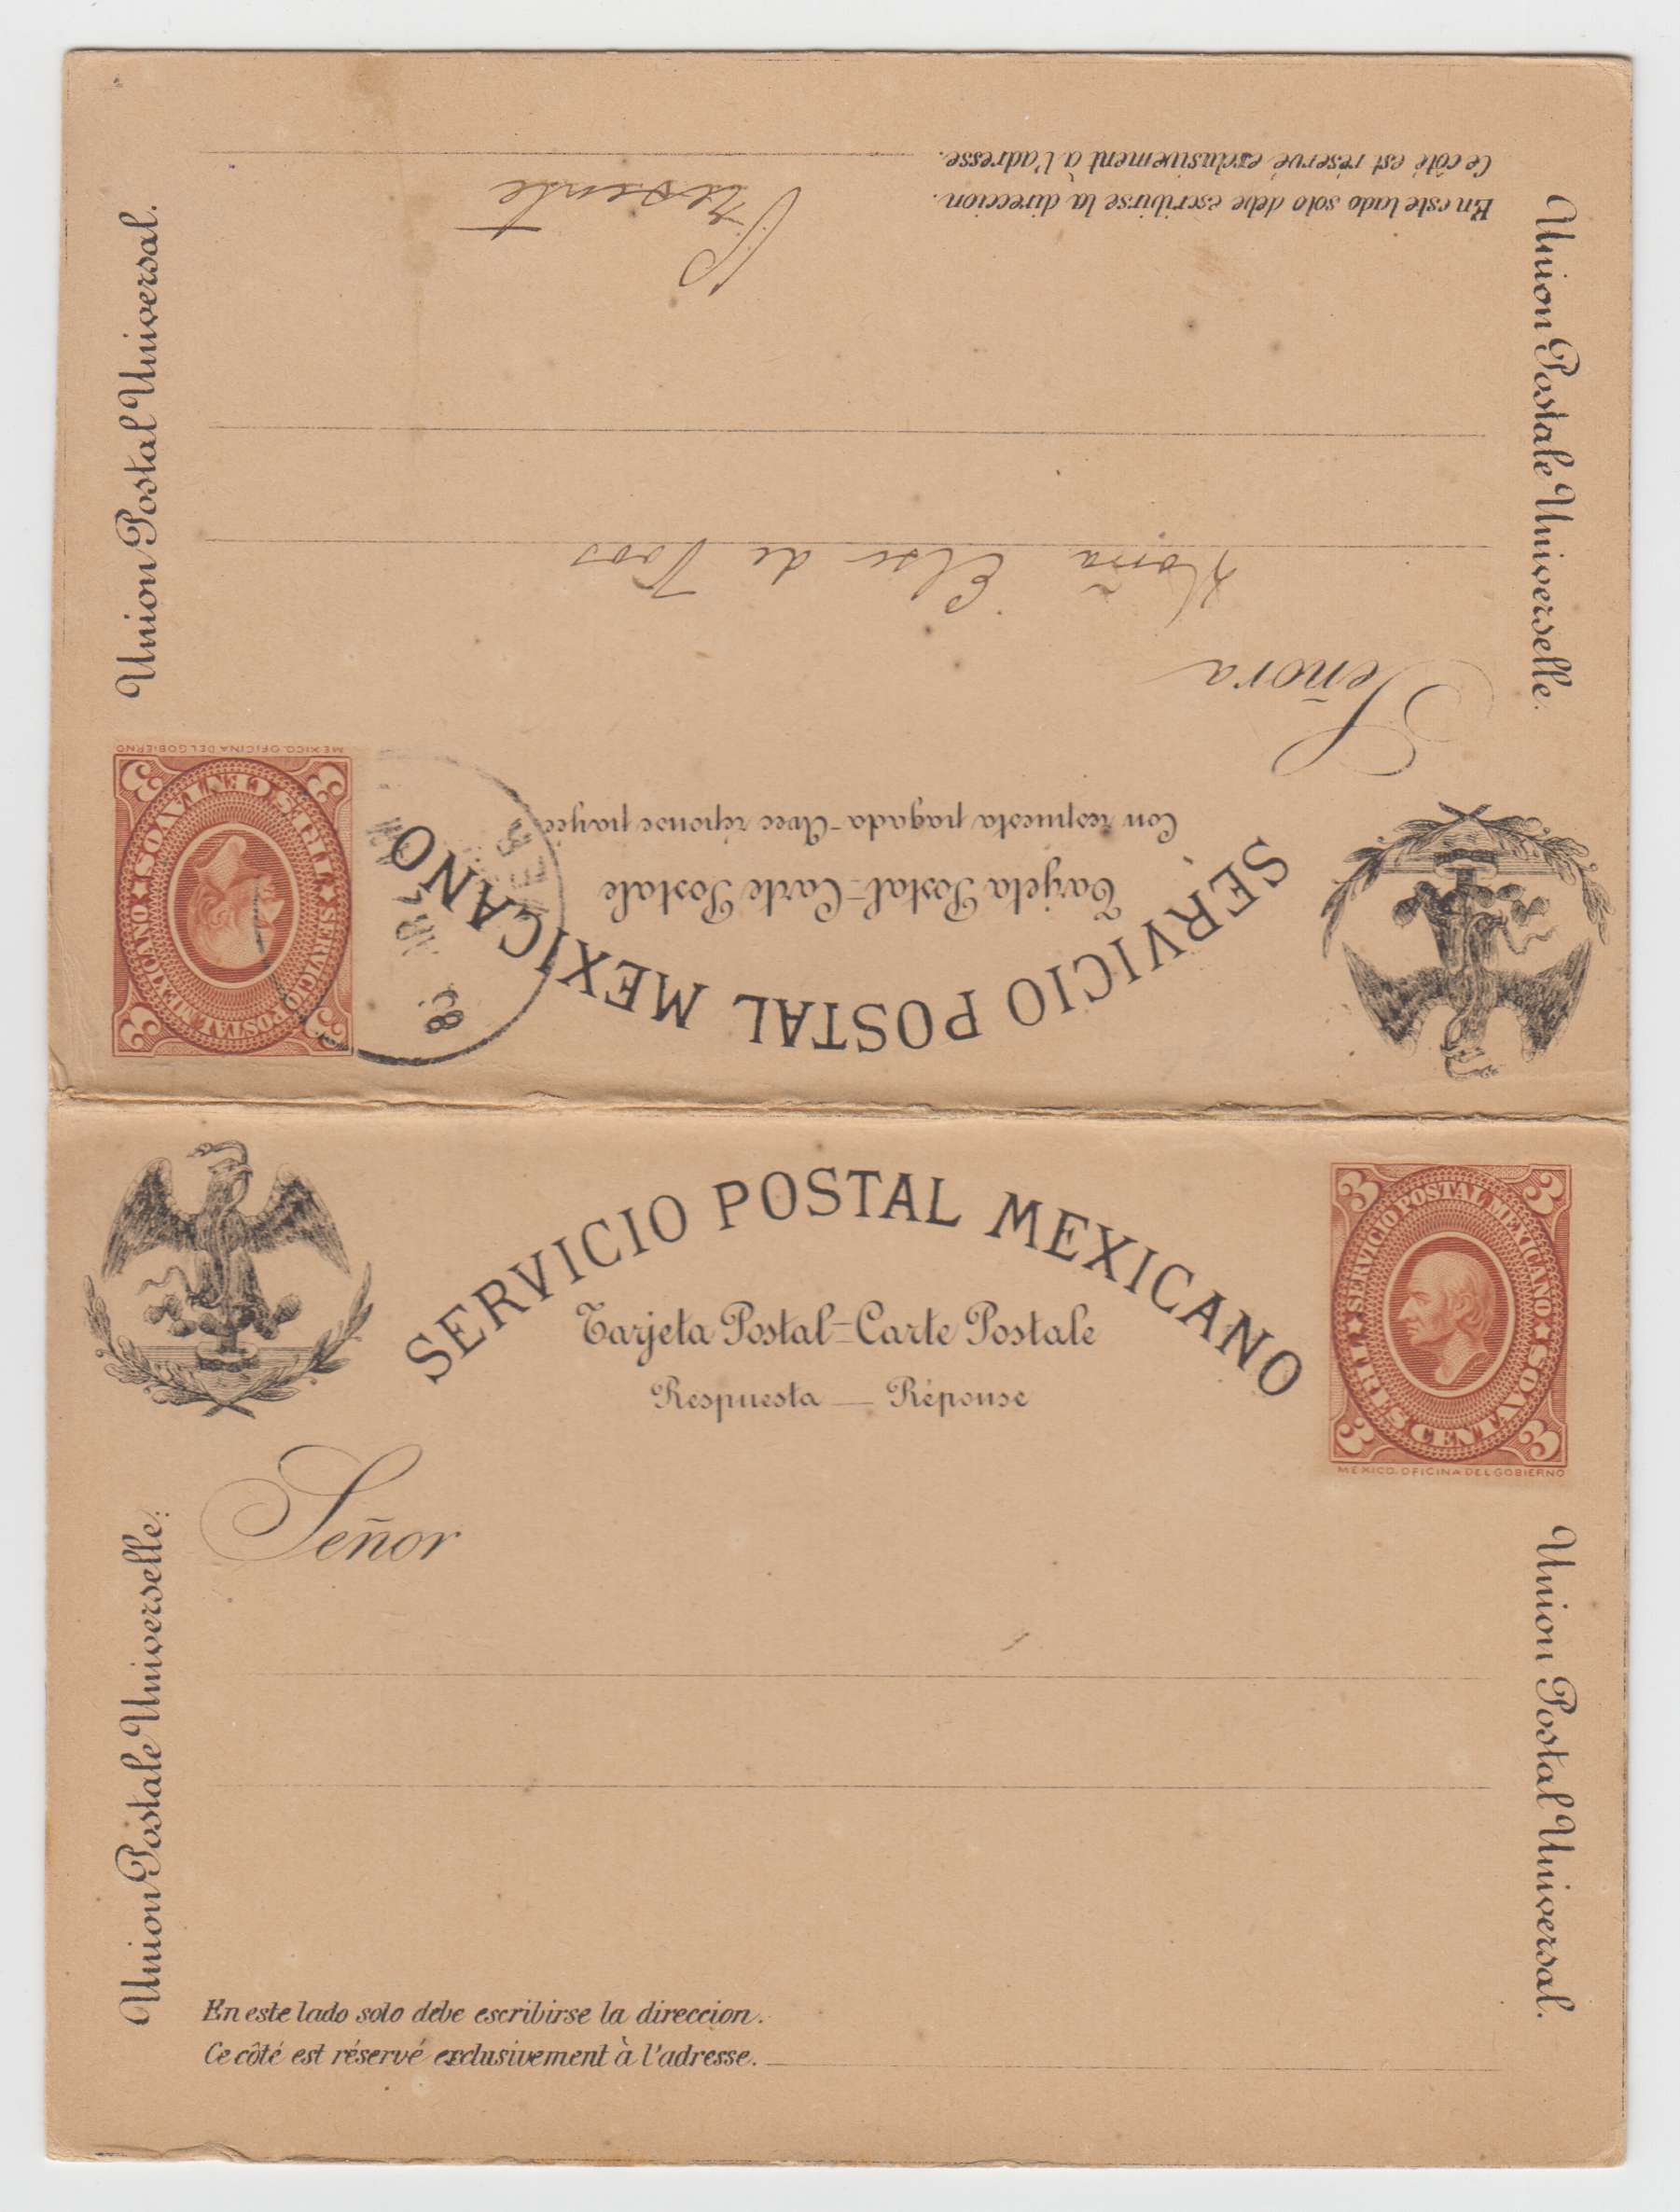 SERVICIO POSTAL MEXICANO
Tarjeta Postal-Carte Postale
Con respuesta pagada-Avec réponse payée
3 3
SERVICIO POSTAL MEXICANO
TRES CENTAVOS
3 3
MEXICO. OFICINA DEL GOBIERNO
Señora
Doña Else de Voos
Presente
En este lado solo debe escribirse la direccion.
Ce côté est réservé exclusivement à l'adresse.
Union Postale Universelle.
Union Postal Universal.
SERVICIO POSTAL MEXICANO
Tarjeta Postal-Carte Postale
Respuesta — Réponse
3 3
SERVICIO POSTAL MEXICANO
TRES CENTAVOS
3 3
MEXICO. OFICINA DEL GOBIERNO
Señor
Union Postale Universelle.
Union Postal Universal.
En este lado solo debe escribirse la direccion.
Ce côté est réservé exclusivement à l'adresse.